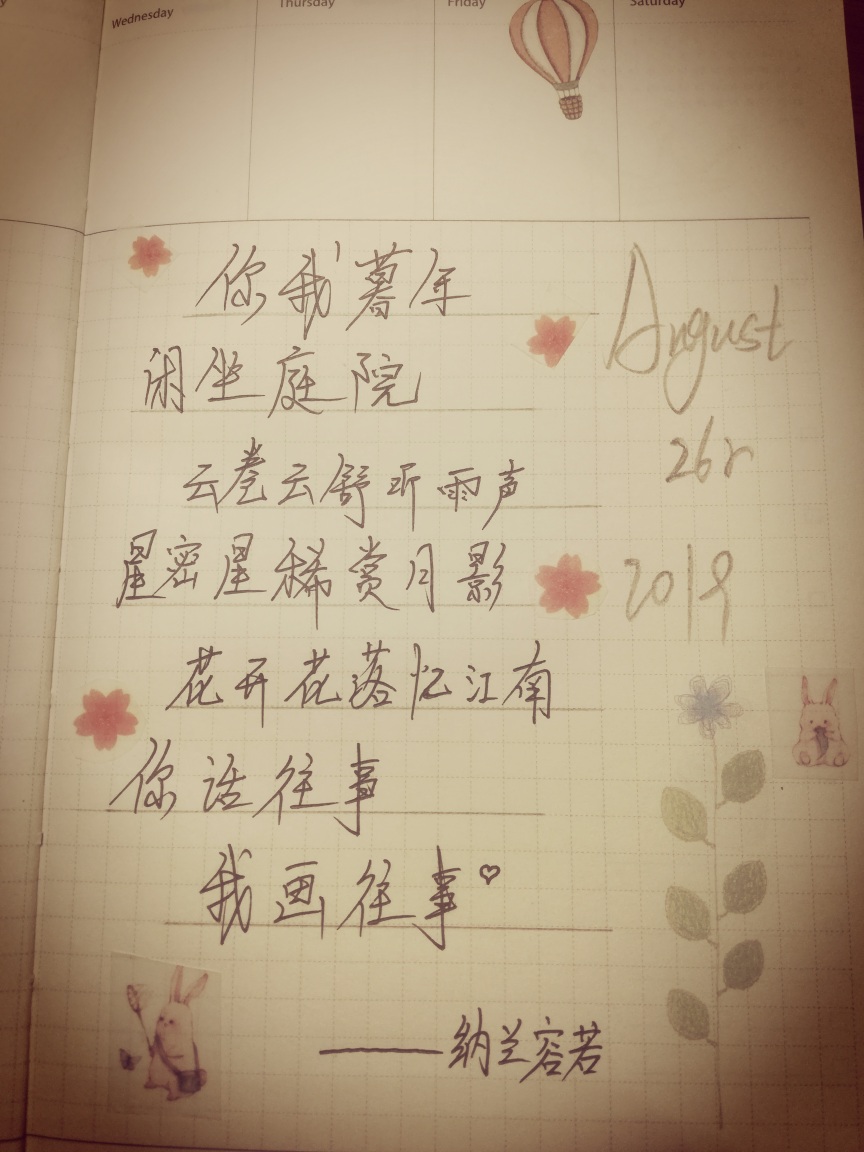 Wednesday
Thursday
Friday
Saturday
你我暮年
闲坐庭院
云卷云舒听雨声
星密星稀赏月影
花开花落忆江南
你话往事
我画往事♡
——纳兰容若
August
26
2019